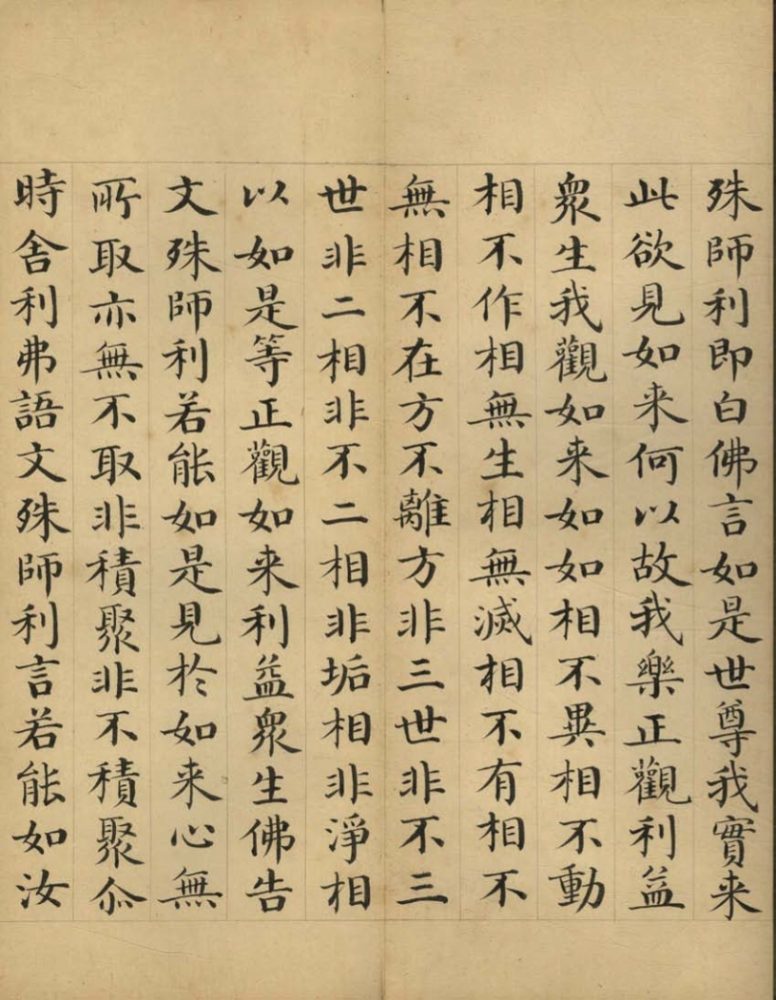 殊師利即白佛言如是世尊我實来
此欲見如来何以故我樂正觀利益
衆生我觀如来如如相不異相不動
相不作相無生相無滅相不有相不
無相不在方不離方非三世非不三
世非二相非不二相非垢相非淨相
以如是等正觀如来利益衆生佛告
文殊師利若能如是見於如来心無
所取亦無不取非積聚非不積聚尒
時舍利弗語文殊師利言若能如汝